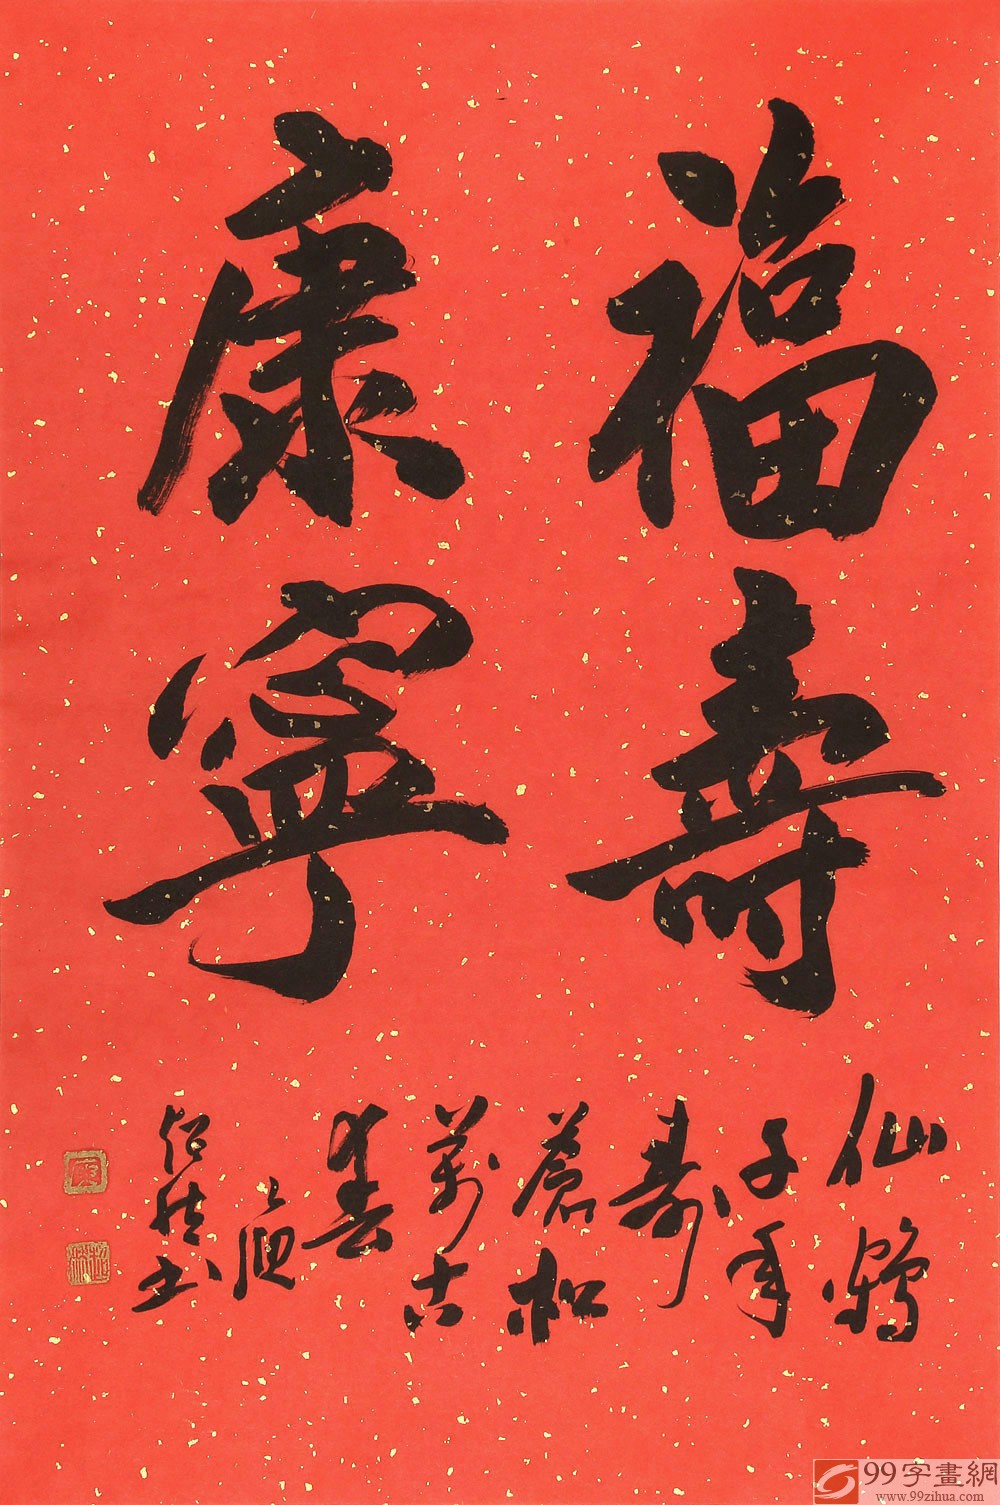 福壽
康寧
仙鶴
千年
壽
蒼松
萬古
春
书
99字畫網
www.99zihua.com